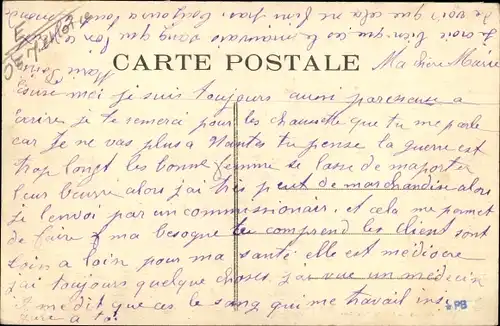 CARTE POSTALE
Ma chère Marie
excuse moi je suis toujours aussi paresseuse a
écrire je te remerci pour les chaussette que tu me parle
car Je ne vas plus a Nantes tu pense la guerre est
trop longt les bonne femme se lasse de maporter
leur beurre alors j'ai très peut de marchandise alors
je l'envoi par un commissionair. et cela me permet
de faire ma besogne tu comprend les client sont
loin a loin pour ma santé elle est médiocre
j'ai toujours quelque choses. j'ai vue un médecin
il me dit que ces le sang qui me travail
a toi
je voir que cela ne fait pas toujours
je crois bien que ces le mauvais sang que
LPB